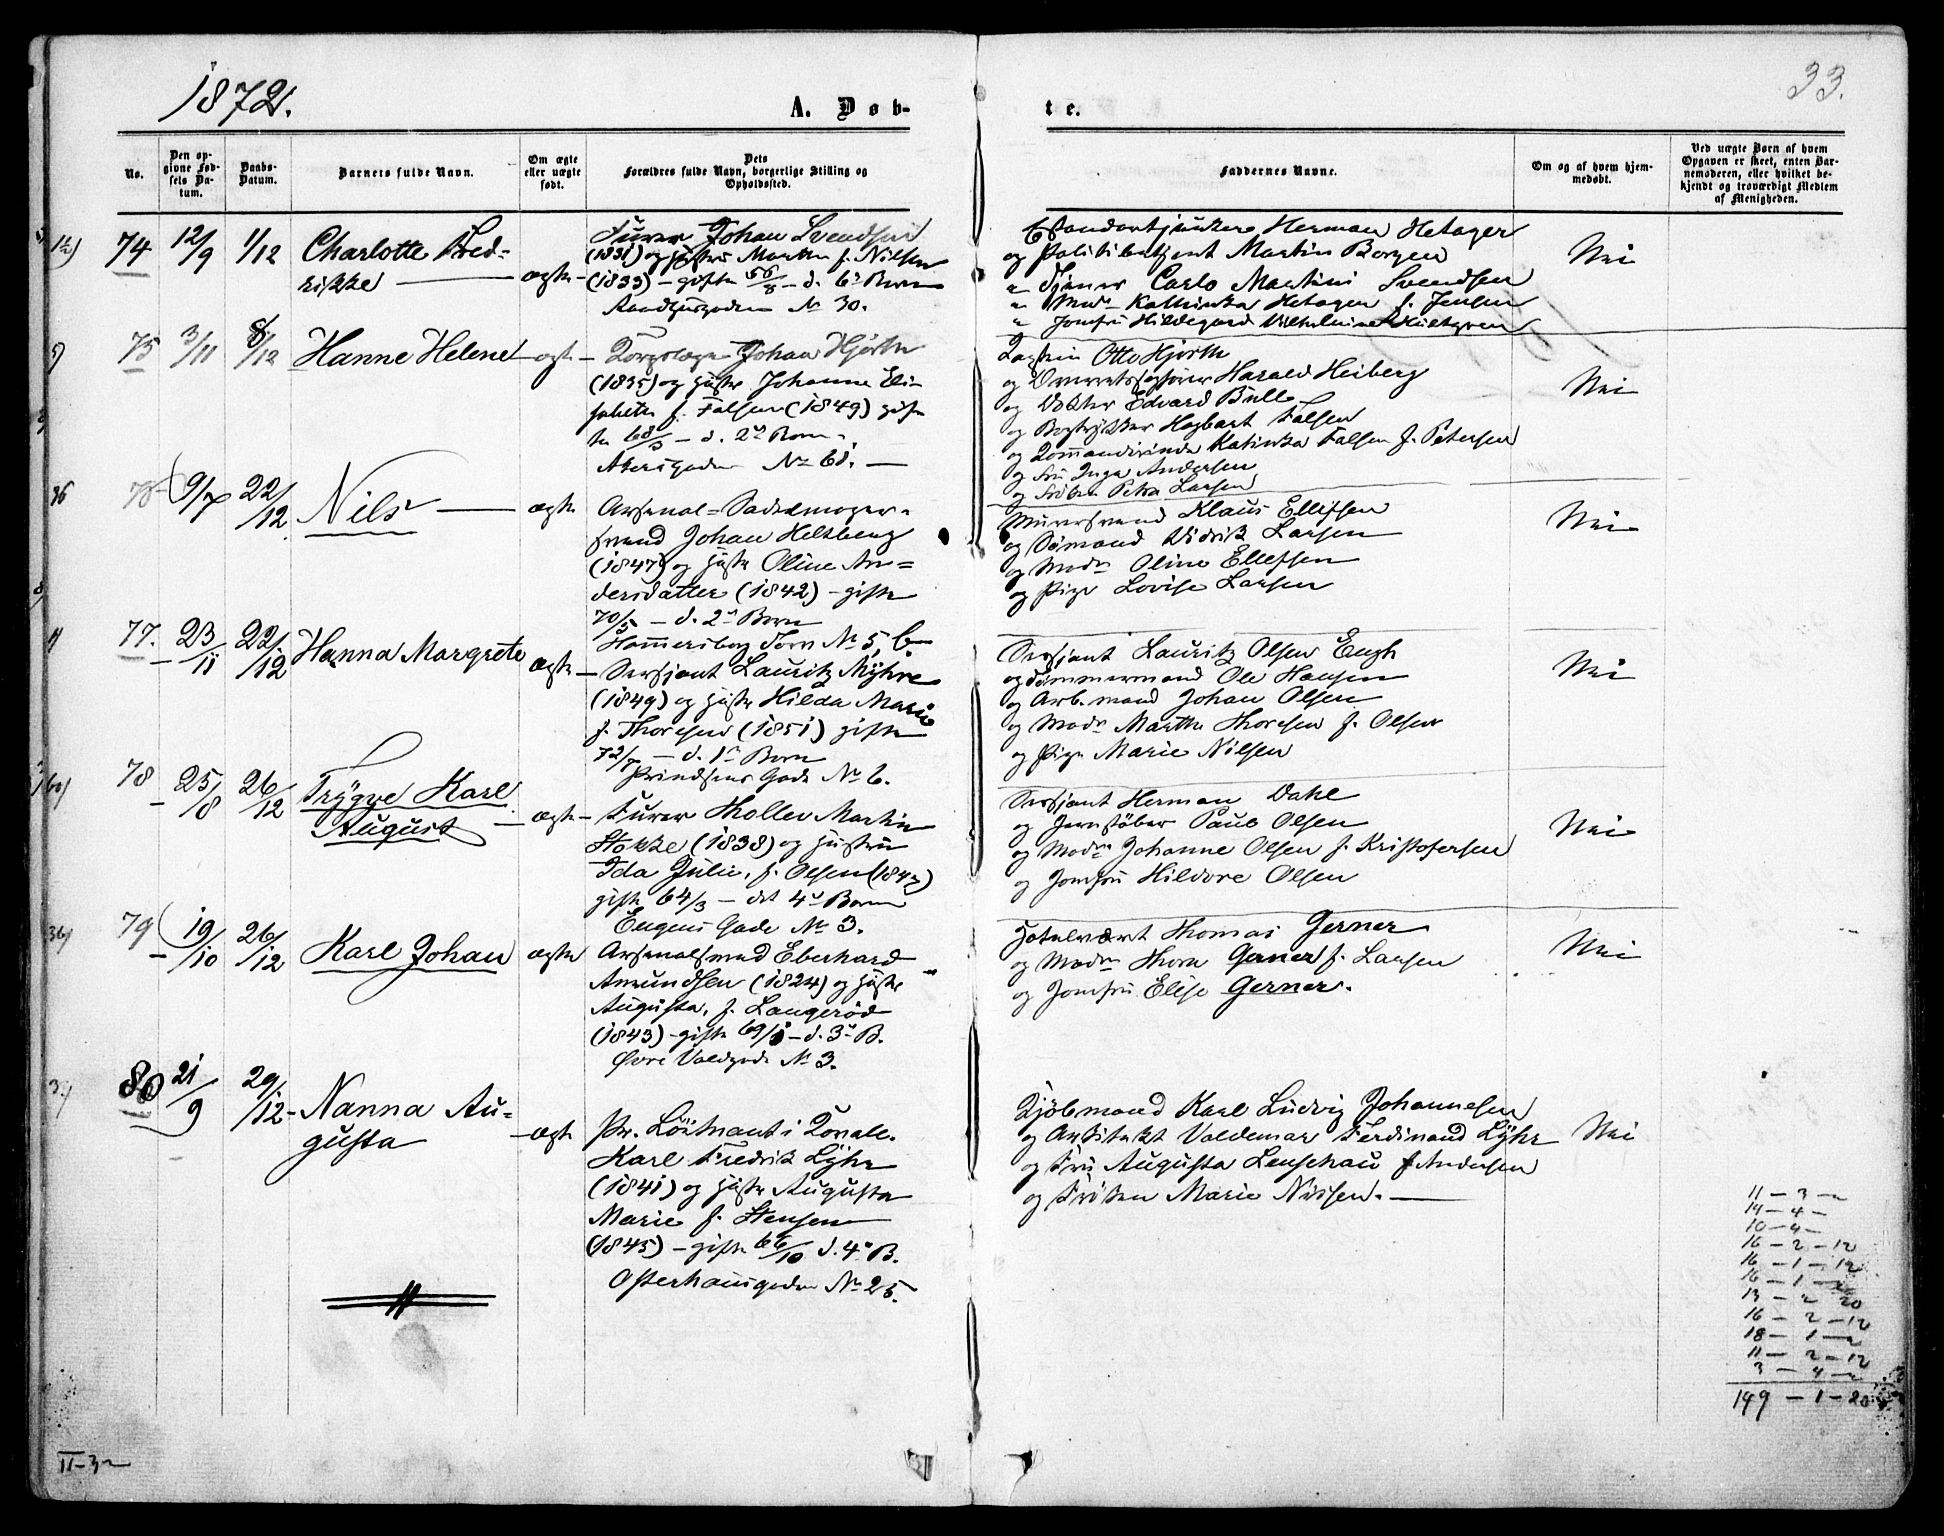 1872.
A. Døb-
te.
33.
No.
Den op-
givne Fød-
sels Da-
tum.
Daabs-
Datum.
Barnets fulde Navn.
Om ægte
eller uægte
født.
Dets
Forældres fulde Navn, borgerlige Stilling og
Opholdssted.
Faddernes Navne.
Om og af hvem hjem-
medøbt.
Ved uægte Børn af hvem
Opgaven er skeet, enten Bar-
nemoderen, eller hvilket be-
kjendt og troværdigt Medlem
af Menigheden.
74 12/9 1/12 Charlotte Fred-
rikke — ægte
Furer Johan Svendsen
(1831) og Hustru Marthe f. Nilsen
(1833) — gifte 56/8 — d. 6te Barn
No 30.
Herman Hetager
og Politibetjent Martin Borgen
Carlo Martini Svendsen
" Mad. Kathinka Hetager f. Jensen
" Jomfru Hildegard Vilhelmine
Nei
75 3/11 8/12 Hanne Helene — ægte
Johan Hjorth
(1835) og Hustr Johanne Eli-
sabeth f. Falsen (1849) gif-
te 68/5 — d. 2det Barn.
Akersgaden No 61. —
Otto Hjorth
og Overretssagfører Harald Heiberg
og Dokter Edvard Bull
og Bogtrykker Hagbart Falsen
og Katinka Falsen f. Petersen
og Fru Inga Andersen
og Frøken Petra Larsen
Nei
76 9/7 22/12 Nils — ægte
Arsenal-Sadelmager-
svend Johan Heltberg
(1847) og Hustr Oline An-
dersdatter (1842) — gifte
70/5 — d. 2det Barn
Hammersborg Torv No 5, b
Murersvend Klaus Ellefsen
og Sømand Didrik Larsen
og Madm Oline Ellefsen
og Pige Lovise Larsen
Nei
77. 23/11 22/12 Hanna Margrete ægte
Sersjant Lauritz Myhre
(1849) og Hustr Hilda Marie
f. Thoresen (1851) gifte
72/7 — d. 1ste Barn
Prindsens Gade No 6.
Sersjant Lauritz Olsen Engh
og Tømmermand Ole Hansen
og Arb. mand Johan Olsen
og Madm Marthe Thoresen f. Olsen
og Pige Marie Nilsen
Nei
78 25/8 26/12 Trygve Karl
August — ægte
Furer Thollev Martin
Stokke (1838) og Hustru
Ida Julie, f. Olsen (1842)
gifte 64/3 — det 4de Barn
Eugenis Gade No 3.
Sersjant Herman Dahl
og Jernstøber Paul Olsen
og Madm Johanne Olsen f. Kristofersen
og Jomfru Hildore Olsen
Nei
79 19/10 26/12 Karl Johan ægte
Arsenalsmed Eberhard
Amundsen (1824) og Hustr
Augusta, f. Langerød
(1843) — gifte 69/1 — d. 3die B.
Øvre Voldgade No 3.
Hotelvært Thomas Gerner
og Madm Thora Gerner f. Larsen
og Jomfru Elise Gerner.
Nei
80 21/9 29/12 Nanna Au-
gusta — ægte
Pr. Løitnant i
Karl Fredrik Lyhr
(1841) og Hustr Augusta
Marie f. Stensen
(1845) — gifte 66/10 d. 4de B.
Osterhausgaden No 25.
Kjøbmand Karl Ludvig Johannesen
og Arkitekt Valdemar Ferdinand Lyhr
og Fru Augusta Lenschau f. Andersen
og Frøken Marie Nissen. —
Nei
11 — 3 —
14 — 4 —
10 — 4 —
16 — 2 — 12
16 — 1 — 12
16 — 1 —
13 — " 20
16 — 2 — 12
18 — 1 — "
11 — 2 — 12
3 — 4 — "
149 — 1 — 20
II-3